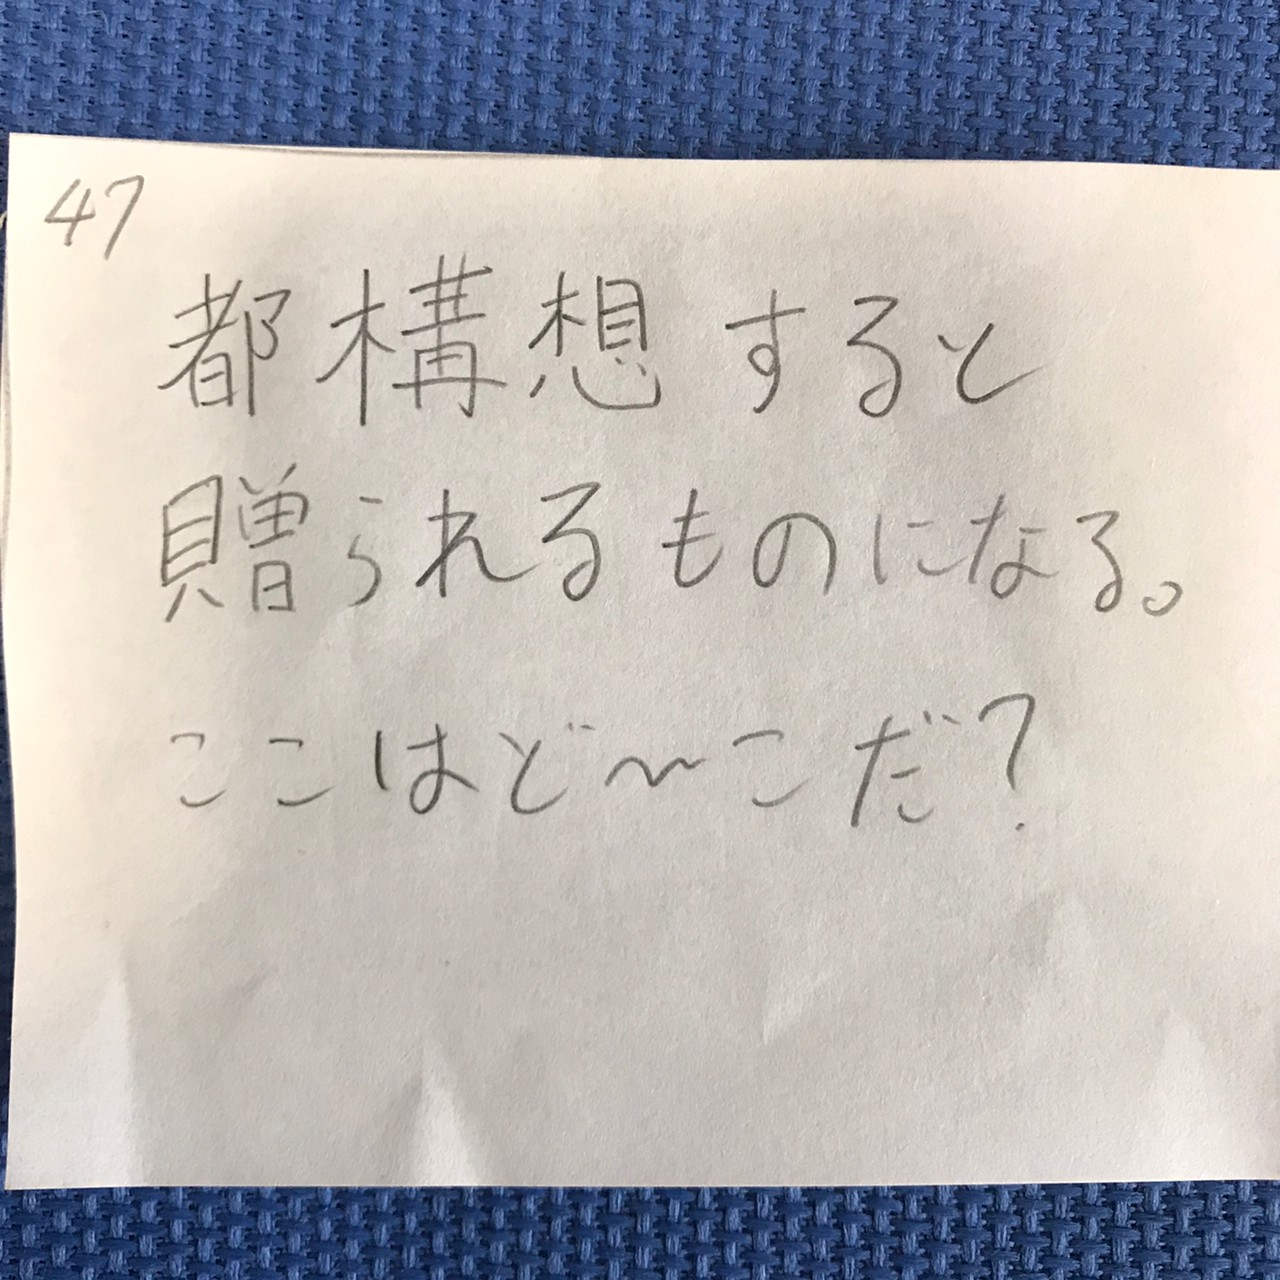 47
都構想すると
贈られるものになる。
ここはど〜こだ?